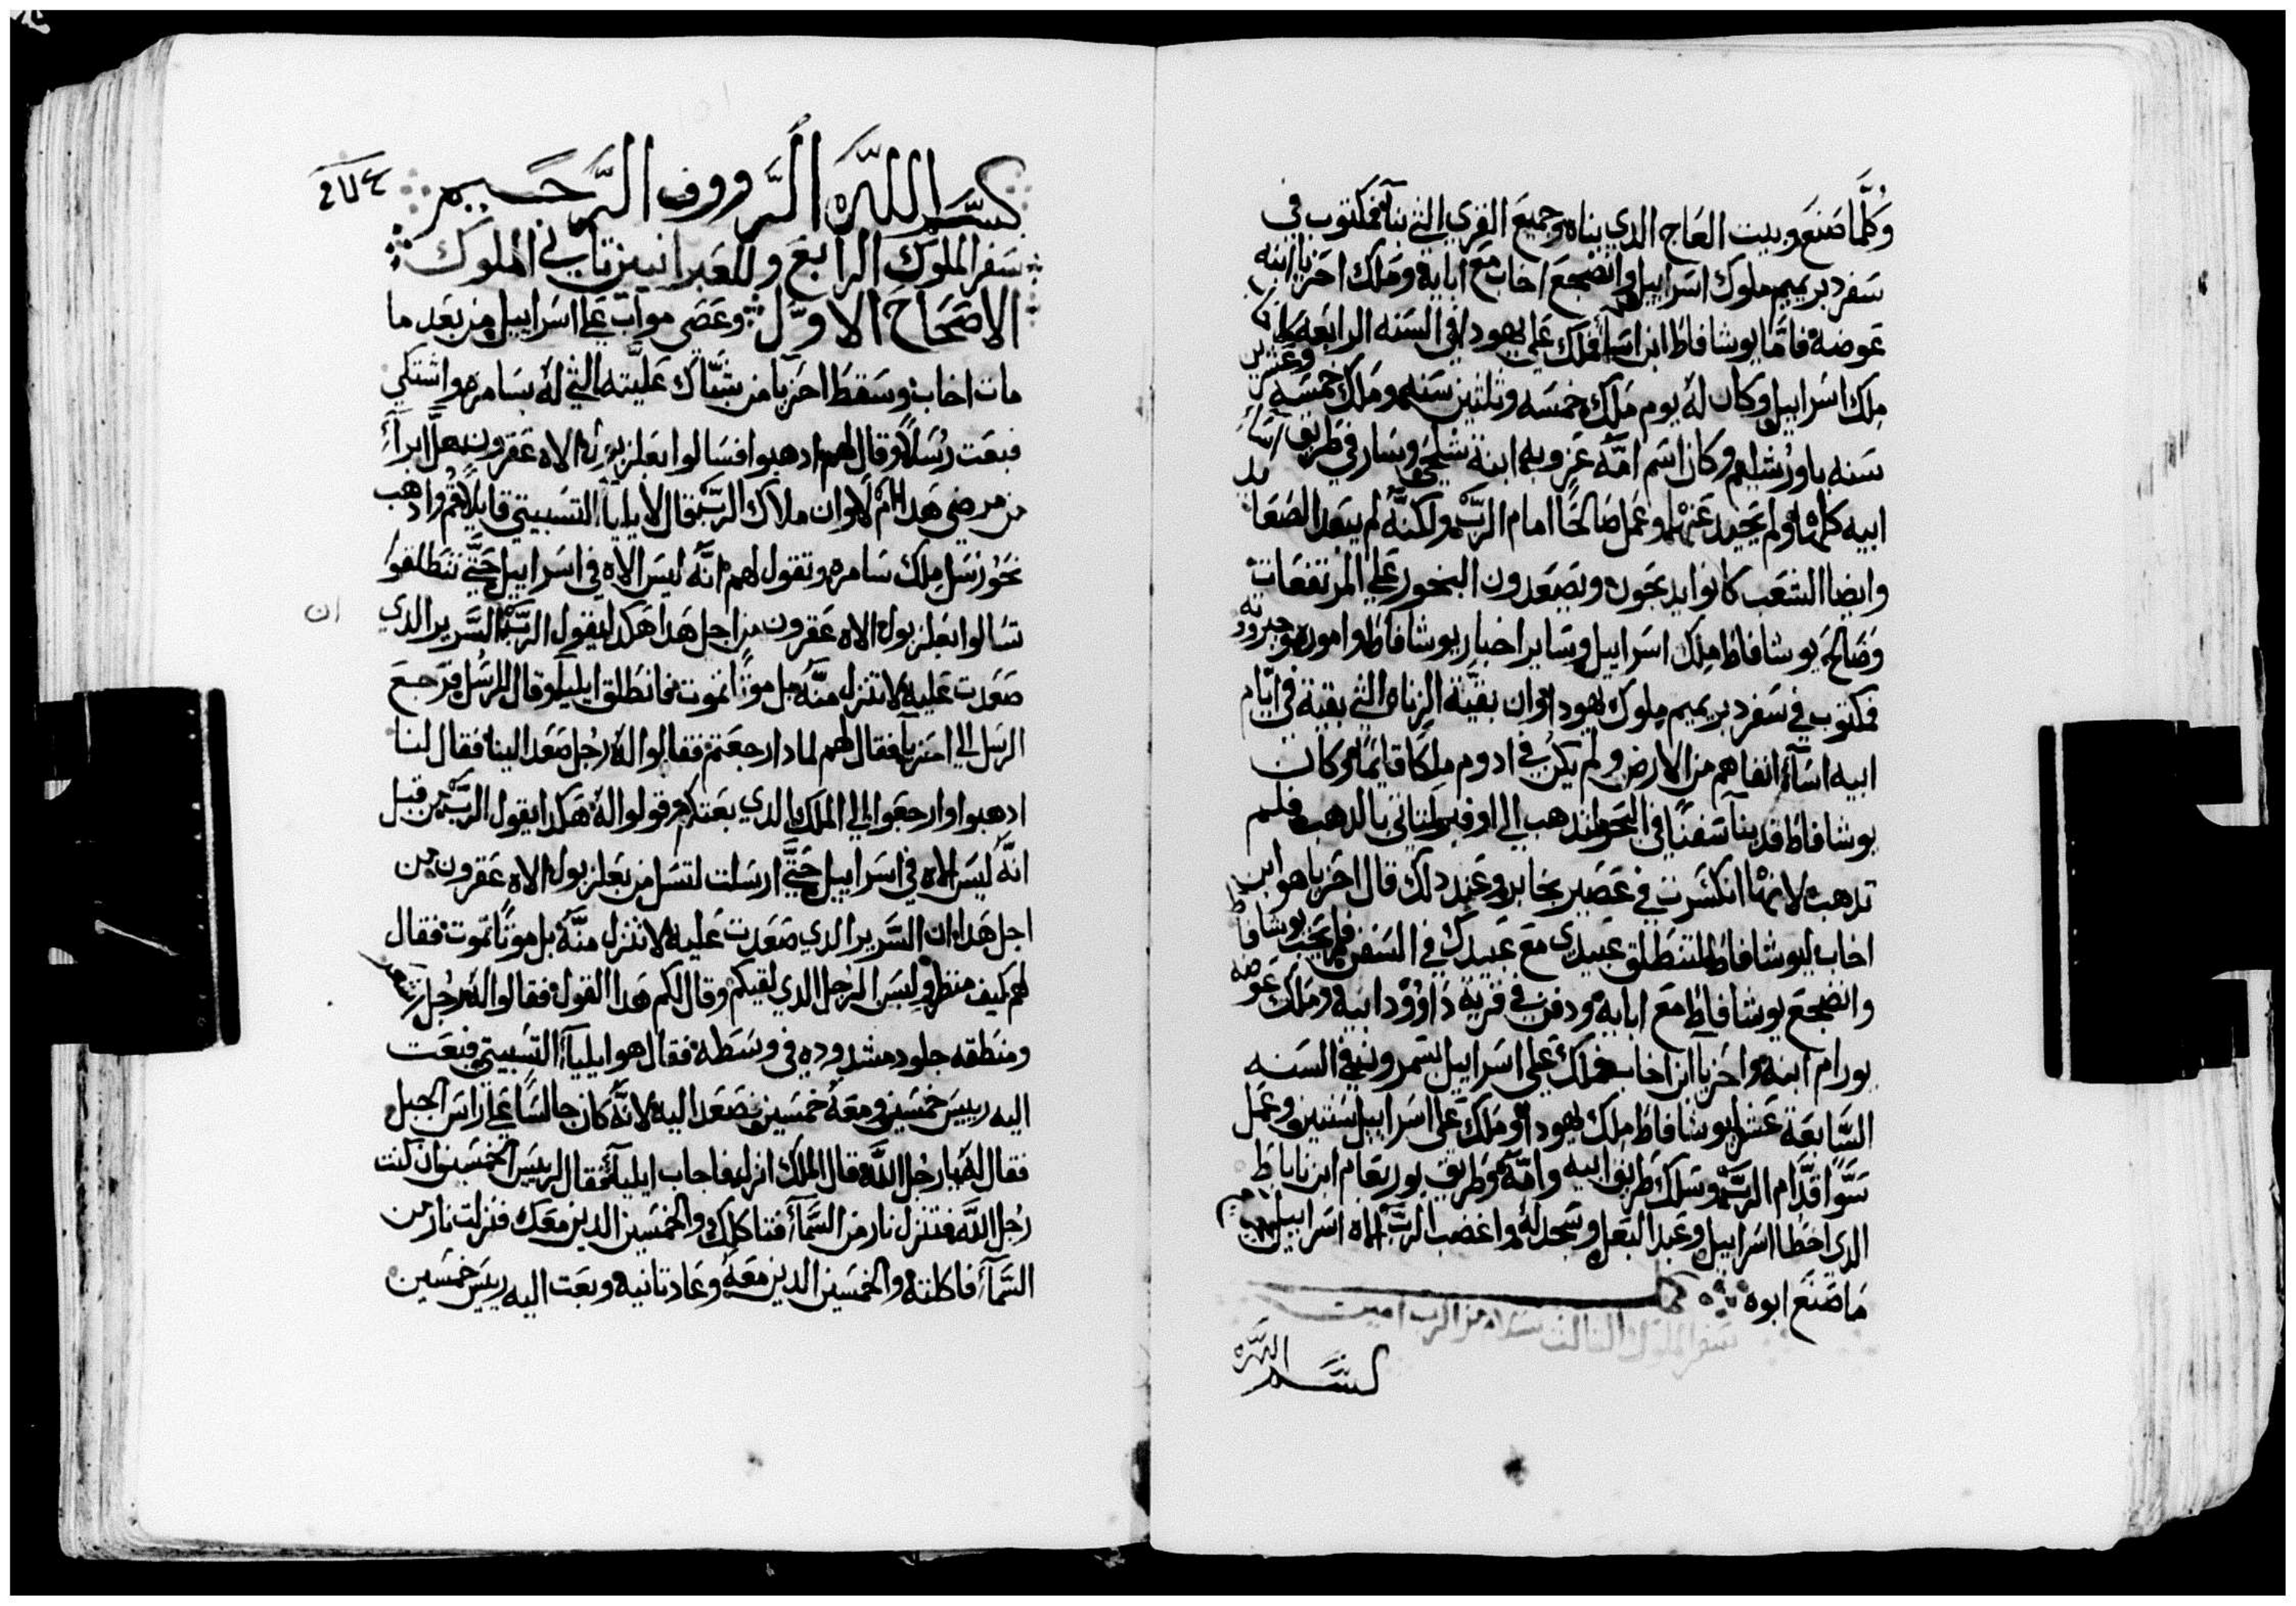 وكلما صنع وبيت العاج الدي بناه وجميع القري التي بناها فمكتوب في
سفر دبريميم ملوك اسراييل وانضجع اخاب مع ابايه وملك احزيا ابنه
عوضه فاما يوشافاط ابن اسا فملك علي يهودا في السنه الرابعه لاخاب
ملك اسراييل وكان له يوم ملك خمسه وتلتين سنه وملك خمسه وعشرين
سنه باورشليم وكان اسم امه عزوبه ابنة شلحي وسار في طريق اساء
ابيه كلها ولم يحيد عنها وعمل صالحًا امام الرب ولكنه لم يبعد الصعايد
وايضا الشعب كانوا يدبحون ويصعدون البخور علي المرتفعات
وصالح يوشافاط ملك اسراييل وساير اخبار يوشافاط واموره وجبروته
فمكتوب في سفر دبريميم ملوك يهودا وان بقية الزناه التي بقية في ايام
ابيه اساء انفاهم من الارض ولم يكن في ادوم ملكا قايما وكان
يوشافاط قد بنا سفنًا في البحر لتدهب الي اوفير لتاتي بالدهب فلم
تدهب لانها انكسرت في عصير بخابر وعند دلك قال احزيا هو ابن
اخاب ليوشافاط لتنطلق عبيدي مع عبيدك في السفن فلم يحب يوشافاط
وانضجع يوشافاط مع ابايه ودفن في قرية داوود ابيه وملك عوضه
يورام ابنه واحزيا ابن اخاب فملك علي اسراييل بتمرون في السنه
السابعة عشر ليوشافاط ملك يهودا وملك علي اسراييل سنتين وعمل
سوًا قدام الرب وسلك طريق ابيه وامه وطريق يوربعام ابن ناباط
الدي اخطا اسراييل وعبد البعل وسجد له واغضب الرب الاه اسراييل
ما صنع ابوه
سفر الملوك التالت بسلام من الرب امين
بسم الله
بسم الله الرووف الرحيم
سفر الملوك الرابع وللعبرانيين تاني الملوك
الاصحاح الاول وعصى مواب علي اسراييل من بعد ما
مات اخاب وسقط احزيا من شباك عليته التي له بسامره واشتكي
فبعت رسلاً وقال لهم ادهبوا فسالوا بعلزبول الاه عقرون هل ابراء
من مرضي هدا ام لا وان ملاك الرب قال لايليا التسبيتي قايلا قم وادهب
نحو رسل ملك سامره وتقول لهم انه ليس الاه في اسراييل حتي تنطلقوا
ان
تسالوا بعلزبول الاه عقرون من اجل هدا هكدا يقول الرب السرير الدي
صعدت عليه لا تنزل منه بل موتًا تموت فانطلق ايليا وقال للرسل فرجع
الرسل الي احزيا فقال لهم لمادا رجعتم فقالوا له رجل صعد الينا فقال لنا
ادهبوا وارجعوا الي الملك الدي بعتكم قولوا له هكدا يقول الرب من قبل
انه ليس الاه في اسراييل حتي ارسلت لتسل من بعلزبول الاه عقرون من
اجل هدا ان السرير الدي صعدت عليه لا تنزل منه بل موتًا تموت فقال
لهم كيف منظر ولبس الرجل الدي لقيكم وقال لكم هدا القول فقالوا له رجل شعر
ومنطقه جلود مشدوده في وسطه فقال هو ايلياء التسبيتي فبعت
اليه رييس خمسين ومعه خمسين فصعد اليه لانه كان جالسًا علي راس الجبل
فقال له يا رجل الله قال الملك انزل فاجاب ايلياء فقال لرييس الخمسين ان كنت
رجل الله فتنزل نار من السماء فتاكلك والخمسين الدين معك فنزلت نار من
السماء فاكلته والخمسين الدين معه وعاد تانيه وبعت اليه رييس خمسين